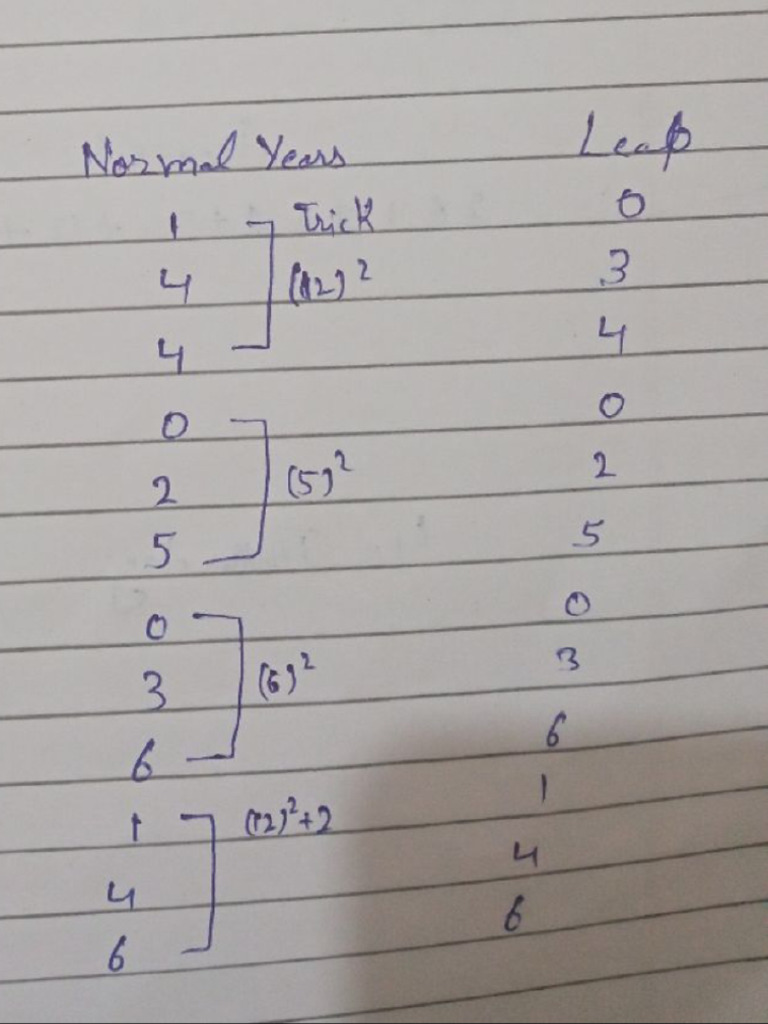 Normal Years Leap
1 Trick 0
4 (12)² 3
4 4
0 0
2 (5)² 2
5 5
0 0
3 (6)² 3
6 6
1 (12)²+2 1
4 4
6 6